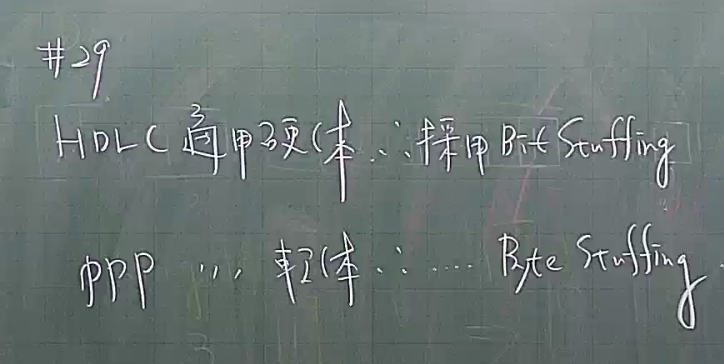 #29
HDLC 適用硬体 ∴採用 Bit Stuffing
PPP ,,, 軟体 ∴ .... Byte Stuffing.